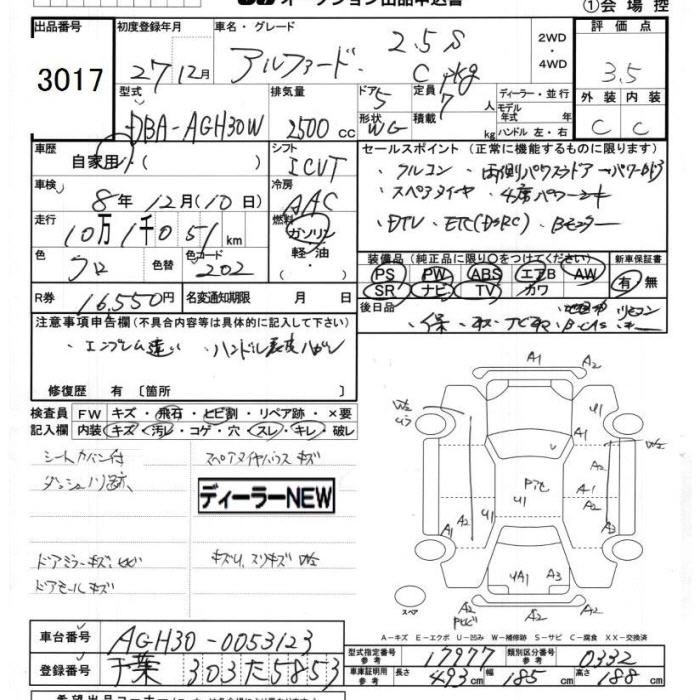 オークション出品申込書
①会場控
出品番号
3017
初度登録年月
27/12月
車名・グレード
アルファード 2.5S
C pkg
2WD
・
4WD
評価点
3.5
外装 内装
C C
型式
DBA-AGH30W
排気量
2500 cc
ドア
5
形状
WG
定員
7人
積載
kg
ディーラー・並行
モデル
年式 年
ハンドル 左・右
車歴
自家用・( )
シフト
ICVT
車検
8年 12月(10日)
冷房
AAC
走行
10万1千051km
燃料
ガソリン
軽油
・( )
色
クロ
色替
色コード
202
R券
16,550円
名変通知期限 月 日
セールスポイント (正常に機能するものに限ります)
・フルコン ・両側パワースラドア
・スペアタイヤ
・DTV ・ETC(DSRC) ・Bモニター
装備品 (純正品に限り○をつけてください)
PS PW ABS エアB AW
SR ナビ TV カワ
新車保証書
有・無
後日品
注意事項申告欄 (不具合内容等は具体的に記入して下さい)
・エンブレム違い ・ハンドル表皮ハガレ
修復歴 有〔箇所 〕
検査員
記入欄
FW キズ・飛石・ヒビ割・リペア跡・×要
内装 キズ・汚レ・コゲ・穴・スレ・キレ・破レ
シートカバー付
スペアタイヤハウスキズ
ディーラーNEW
ドアミラーキズ
ドアモールキズ
A1 A2
U1
A2
A1 A2
U1
A1 A2
A3
UA1 A3
A2 A2
スペア
A－キズ E－エクボ U－凹み W－補修跡 S－サビ C－腐食 XX－交換済
車台番号
AGH30-0053123
登録番号
千葉 303 た 5853
型式指定番号
参考
17977
類別区分番号
参考
0332
車庫証明用
参考
長さ 493cm 幅 185cm 高さ 188cm